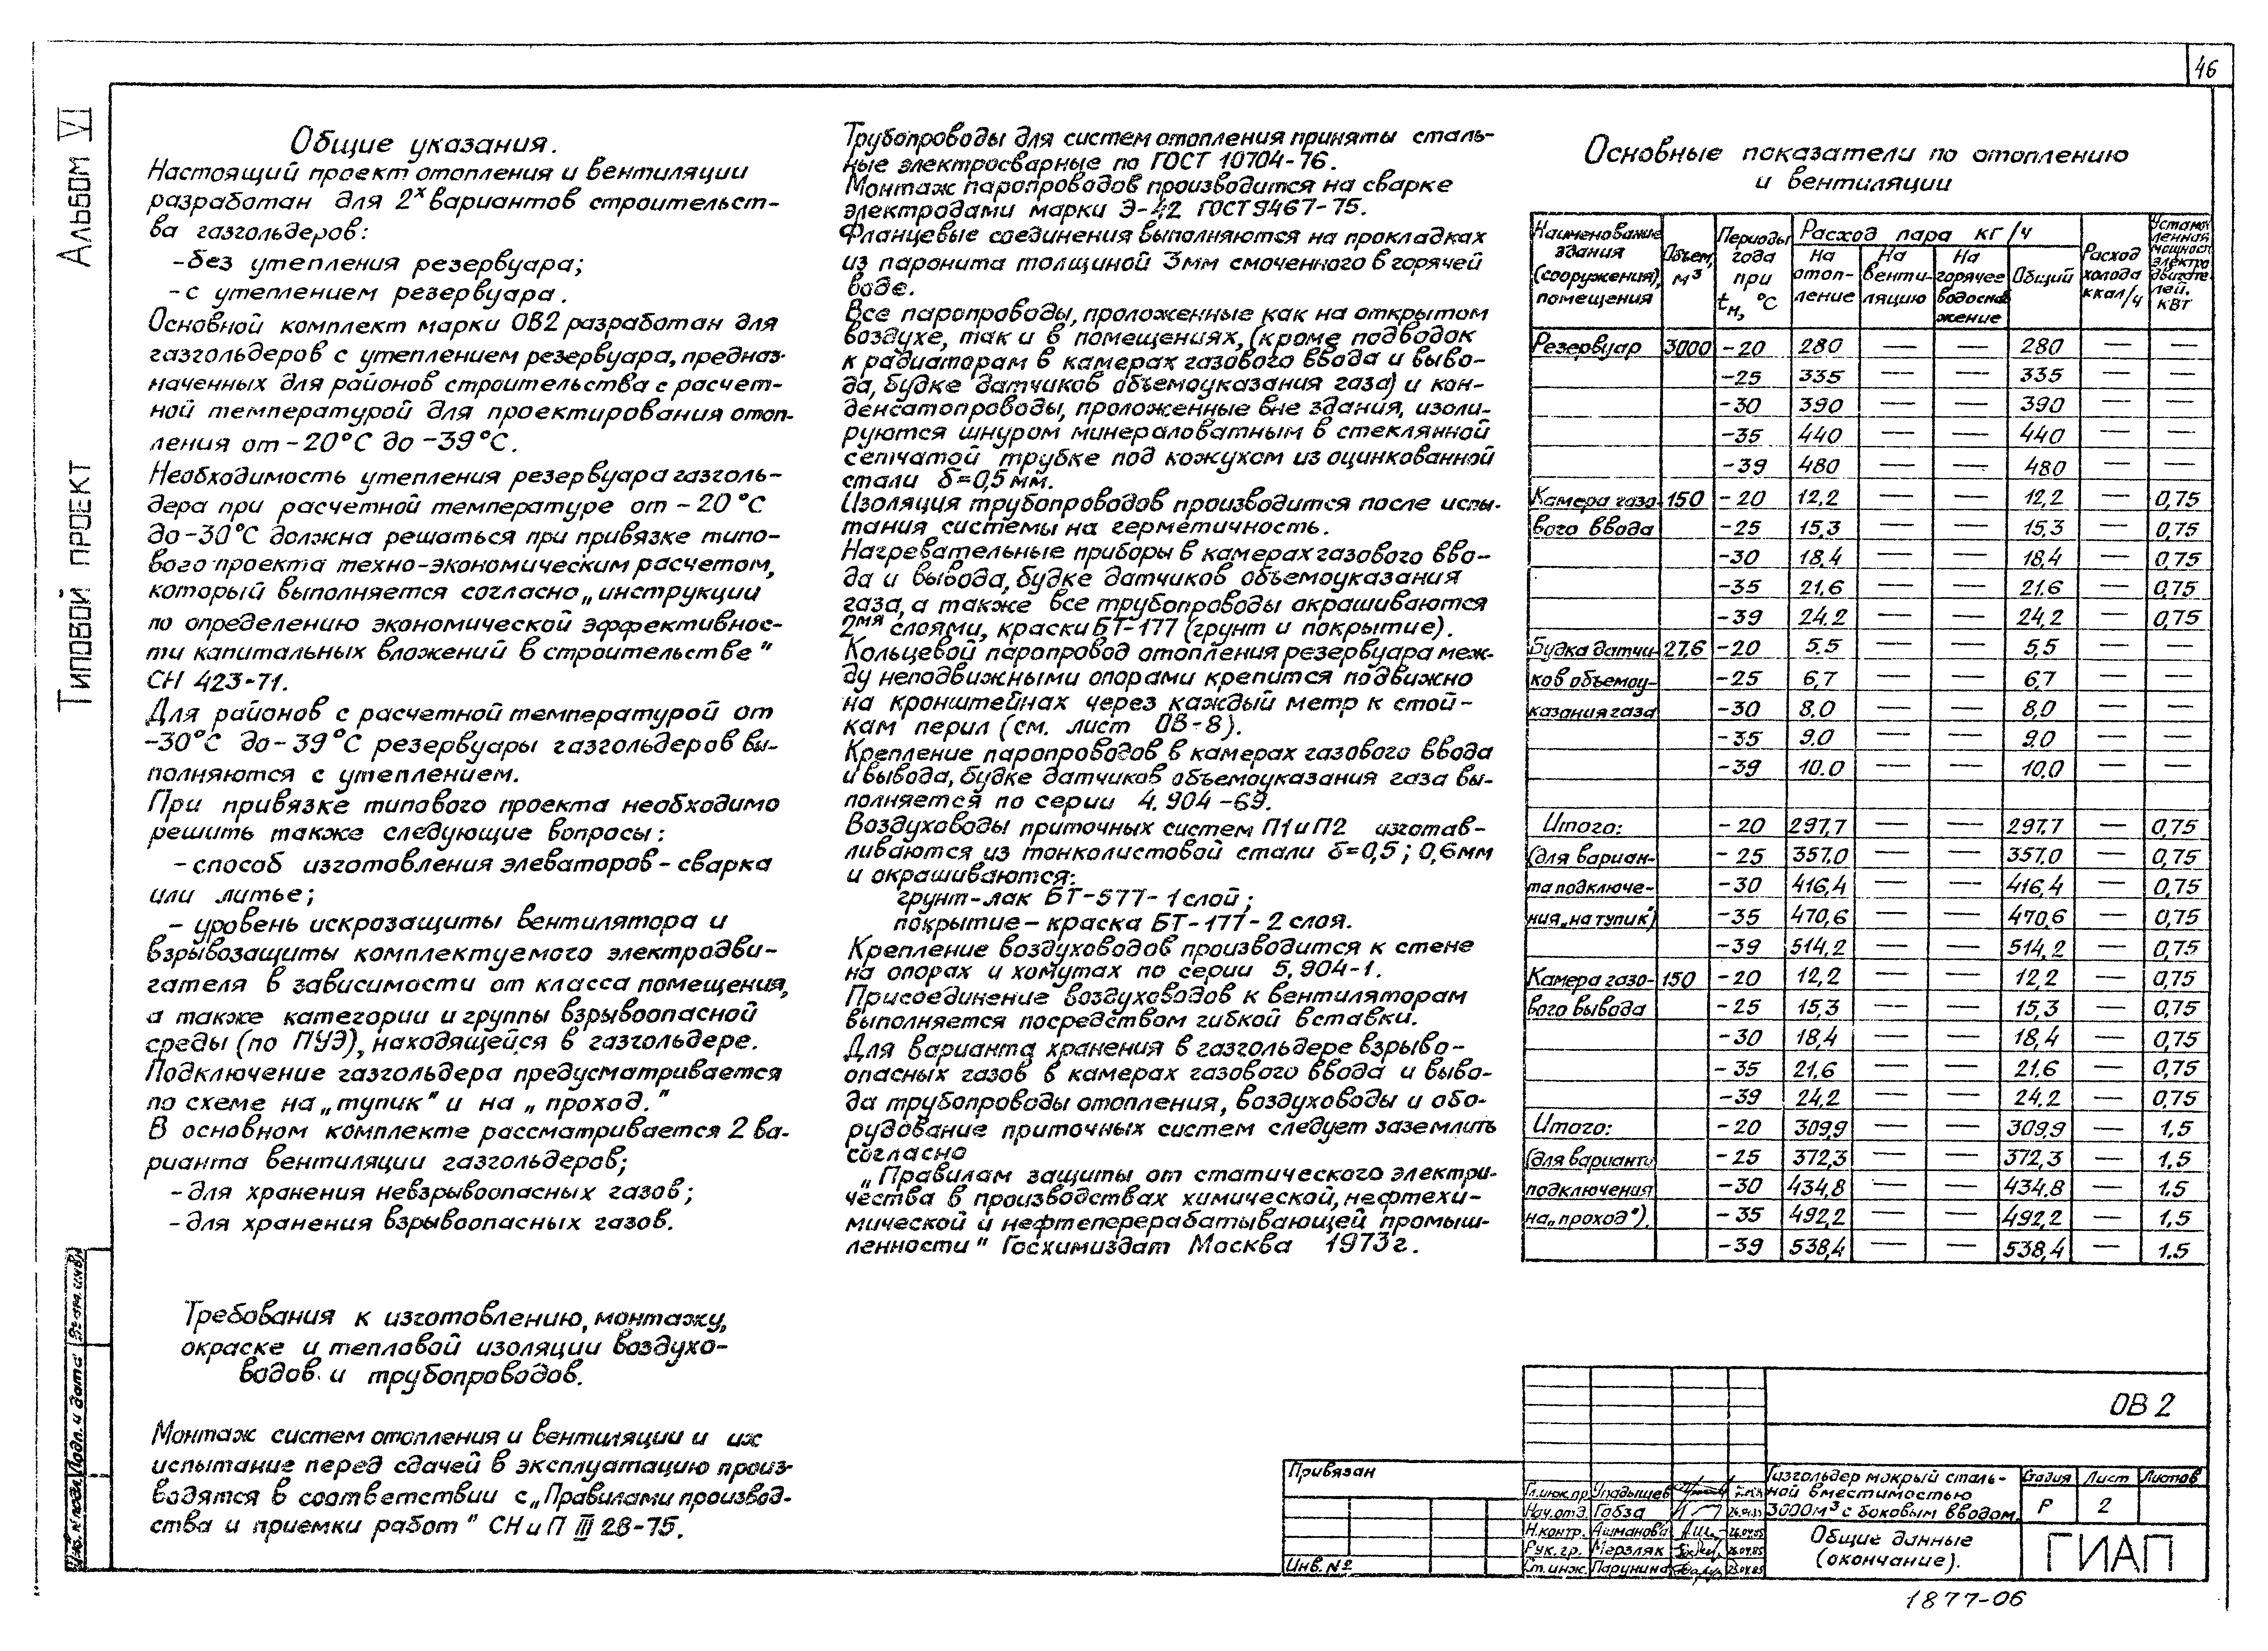 46
Альбом VI
Типовой проект
Общие указания.
Настоящий проект отопления и вентиляции
разработан для 2х вариантов строительст-
ва газгольдеров:
-без утепления резервуара;
-с утеплением резервуара.
Основной комплект марки ОВ2 разработан для
газгольдеров с утеплением резервуара, предназ-
наченных для районов строительства с расчет-
ной температурой для проектирования отоп-
ления от -20°С до -39°С.
Необходимость утепления резервуара газголь-
дера при расчетной температуре от -20°С
до -30°С должна решаться при привязке типо-
вого проекта техно-экономическим расчетом,
который выполняется согласно „инструкции
по определению экономической эффективнос-
ти капитальных вложений в строительстве"
СН 423-71.
Для районов с расчетной температурой от
-30°С до -39°С резервуары газгольдеров вы-
полняются с утеплением.
При привязке типового проекта необходимо
решить также следующие вопросы:
-способ изготовления элеваторов - сварка
или литье;
- уровень искрозащиты вентилятора и
взрывозащиты комплектуемого электродви-
гателя в зависимости от класса помещения,
а также категории и группы взрывоопасной
среды (по ПУЭ), находящейся в газгольдере.
Подключение газгольдера предусматривается
по схеме на „тупик" и на „проход."
В основном комплекте рассматривается 2 ва-
рианта вентиляции газгольдеров;
-для хранения невзрывоопасных газов;
-для хранения взрывоопасных газов.
Требования к изготовлению, монтажу,
окраске и тепловой изоляции воздухо-
водов и трубопроводов.
Монтаж систем отопления и вентиляции и их
испытание перед сдачей в эксплуатацию произ-
водятся в соответствии с „Правилами производ-
ства и приемки работ" СНиП III 28-75.
Трубопроводы для систем отопления приняты сталь-
ные электросварные по ГОСТ 10704-76.
Монтаж паропроводов производится на сварке
электродами марки Э-42 ГОСТ 9467-75.
Фланцевые соединения выполняются на прокладках
из паронита толщиной 3мм смоченного в горячей
воде.
Все паропроводы, проложенные как на открытом
воздухе, так и в помещениях, (кроме подводок
к радиаторам в камерах газового ввода и выво-
да, будке датчиков объемоуказания газа) и кон-
денсатопроводы, проложенные вне здания, изоли-
руются шнуром минераловатным в стеклянной
сетчатой трубке под кожухом из оцинкованной
стали δ=0,5мм.
Изоляция трубопроводов производится после испы-
тания системы на герметичность.
Нагревательные приборы в камерах газового вво-
да и вывода, будке датчиков объемоуказания
газа, а также все трубопроводы окрашиваются
2мя слоями, краски БТ-177 (грунт и покрытие).
Кольцевой паропровод отопления резервуара меж-
ду неподвижными опорами крепится подвижно
на кронштейнах через каждый метр к стой-
кам перил (см. лист ОВ-8).
Крепление паропроводов в камерах газового ввода
и вывода, будке датчиков объемоуказания газа вы-
полняется по серии 4.904-69.
Воздуховоды приточных систем П1 и П2 изготав-
ливаются из тонколистовой стали δ=0,5; 0,6мм
и окрашиваются:
грунт-лак БТ-577-1 слой;
покрытие - краска БТ-177-2 слоя.
Крепление воздуховодов производится к стене
на опорах и хомутах по серии 5.904-1.
Присоединение воздуховодов к вентиляторам
выполняется посредством гибкой вставки.
Для варианта хранения в газгольдере взрыво-
опасных газов в камерах газового ввода и выво-
да трубопроводы отопления, воздуховоды и обо-
рудование приточных систем следует заземлить
согласно
„Правилам защиты от статического электри-
чества в производствах химической, нефтехи-
мической и нефтеперерабатывающей промыш-
ленности" Госхимиздат Москва 1973г.
Основные показатели по отоплению
и вентиляции
Наименование здания (сооружения), помещения | Объем, м³ | Периоды года при tн, °С | Расход пара кг/ч | Расход холода ккал/ч | Установленная мощность электродвигателей. кВт
На отопление | На вентиляцию | На горячее водоснабжение | Общий
Резервуар 3000 -20 280 — — 280 — —
-25 335 — — 335 — —
-30 390 — — 390 — —
-35 440 — — 440 — —
-39 480 — — 480 — —
Камера газо- 150 -20 12,2 — — 12,2 — 0,75
вого ввода -25 15,3 — — 15,3 — 0,75
-30 18,4 — — 18,4 — 0,75
-35 21,6 — — 21.6 — 0,75
-39 24.2 — — 24,2 — 0,75
Будка датчи- 27,6 -20 5.5 — — 5,5 — —
ков объемоу- -25 6,7 — — 6,7 — —
казания газа -30 8.0 — — 8,0 — —
-35 9.0 — — 9.0 — —
-39 10.0 — — 10,0 — —
Итого: -20 297,7 — — 297.7 — 0,75
(для вариан- -25 357.0 — — 357.0 — 0,75
та подключе- -30 416,4 — — 416,4 — 0,75
ния „на тупик") -35 470,6 — — 470,6 — 0,75
-39 514,2 — — 514,2 — 0,75
Камера газо- 150 -20 12,2 — — 12,2 — 0,75
вого вывода -25 15,3 — — 15,3 — 0,75
-30 18,4 — — 18,4 — 0,75
-35 21,6 — — 21.6 — 0,75
-39 24,2 — — 24.2 — 0,75
Итого: -20 309,9 — — 309,9 — 1,5
(для варианта -25 372,3 — — 372,3 — 1,5
подключения -30 434,8 — — 434.8 — 1.5
на „проход"). -35 492,2 — — 492,2 — 1,5
-39 538,4 — — 538,4 — 1.5
Инв. № подл. Подп. и дата Взам. инв.
Привязан
Инв. №
ОВ 2
Гл. инж. пр.
Нач. отд. Гобза
Н. контр. Ашманова 26.04.85
Рук. гр. Мерзляк 26.04.85
Ст. инж. Парунина 25.04.85
Газгольдер мокрый сталь-
ной вместимостью
3000м³ с боковым вводом.
Стадия Лист Листов
Р 2
Общие данные
(окончание).
ГИАП
1877-06